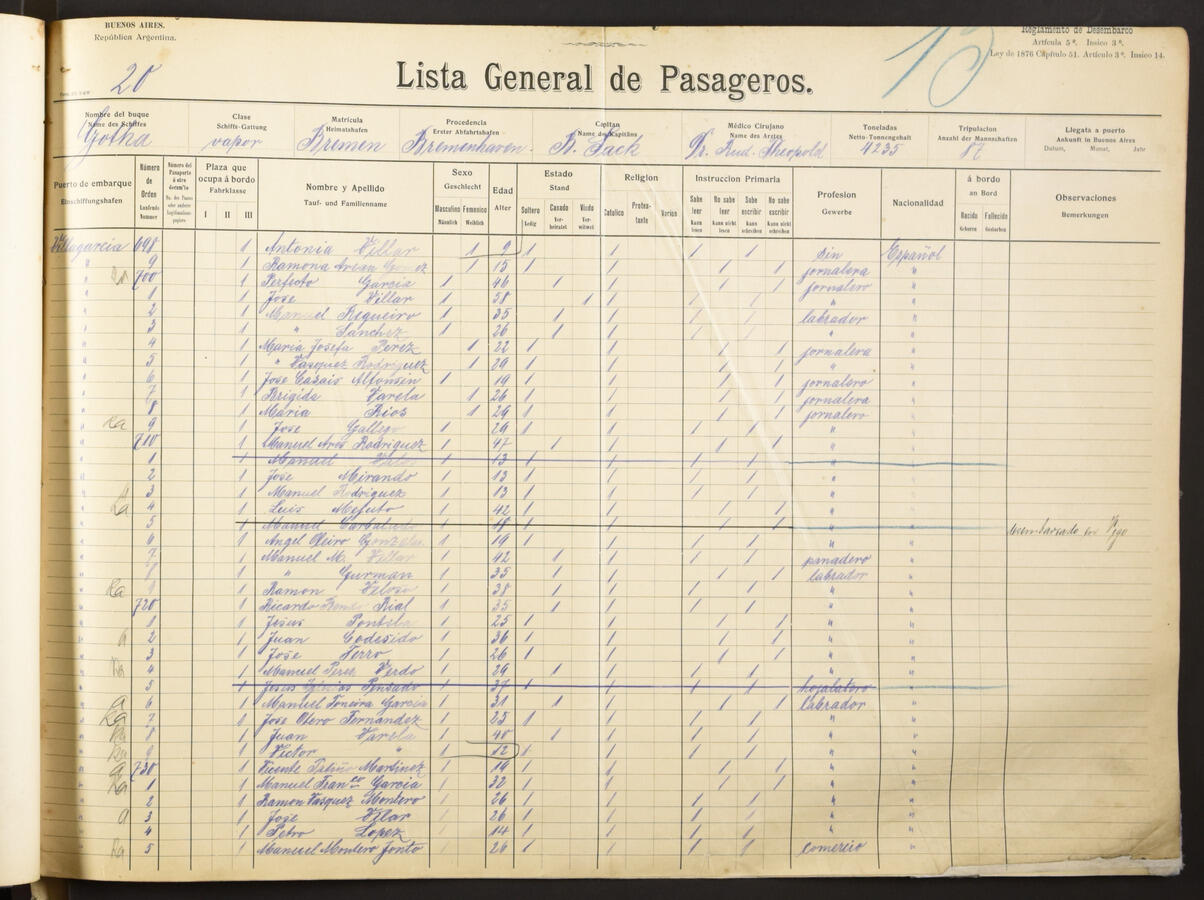 BUENOS AIRES.
República Argentina.
20
15
Reglamento de Desembarco
Artícula 5º. Insico 3º.
Ley de 1876 Cápitulo 51. Artículo 3º. Insico 14.
Lista General de Pasageros.
Nombre del buque Clase Matrícula Procedencia Capitan Médico Cirujano Toneladas Tripulacion Llegata a puerto
Name des Schiffes Schiffs-Gattung Heimatshafen Erster Abfahrtshafen Name des Kapitäns Name des Arztes Netto-Tonnengehalt Anzahl der Mannschaften Ankunft in Buenos Aires
Datum, Monat, Jahr
Gotha vapor Bremen Bremenhaven Dr. Rud. Theopold 4235 87
Puerto de embarque Einschiffungshafen
Número de Orden Laufende Nummer
Plaza que ocupa á bordo Fahrklasse I II III
Nombre y Apellido Tauf- und Familienname
Sexo Geschlecht Masculino Männlich Femenino Weiblich
Edad Alter
Estado Stand Soltero Ledig Casado Verheiratet Viudo Verwitwet
Religion Catolico Protestante Varios
Instruccion Primaria Sabe leer kann lesen No sabe leer kann nicht lesen Sabe escribir kann schreiben No sabe escribir kann nicht schreiben
Profesion Gewerbe
Nacionalidad
á bordo an Bord Nacido Geboren Fallecido Gestorben
Observaciones Bemerkungen
Villagarcia 698 1 Antonia Villar 1 9 1 1 1 1 sin Español
" 9 1 Ramona 1 15 1 1 1 1 jornalera "
" 700 1 Perfecto Garcia 1 46 1 1 1 1 jornalero "
" 1 1 Jose Villar 1 58 1 1 1 1 " "
" 2 1 Manuel Regueiro 1 35 1 1 1 1 labrador "
" 3 1 " Sanchez 1 26 1 1 1 1 " "
" 4 1 Maria Josefa Perez 1 22 1 1 1 1 jornalera "
" 5 1 " Vasquez Rodriguez 1 29 1 1 1 1 " "
" 6 1 Jose Casais Alfonsin 1 19 1 1 1 1 jornalero "
" 7 1 Brigida Varela 1 26 1 1 1 1 jornalera "
" 8 1 Maria Rios 1 29 1 1 1 1 jornalero "
" 9 1 Jose Gallego 1 29 1 1 1 1 " "
" 710 1 Manuel Aros Rodriguez 1 47 1 1 1 1 " "
" 1 1 Manuel 1 13 1 1 1 1 " "
" 2 1 Jose Mirando 1 13 1 1 1 1 " "
" 3 1 Manuel Rodriguez 1 13 1 1 1 1 " "
" 4 1 Luis 1 42 1 1 1 1 " "
" 5 1 Manuel 1 18 1 1 1 1 " " por Vigo
" 6 1 Angel Oteiro Gonzales 1 19 1 1 1 1 " "
" 7 1 Manuel M. Villar 1 42 1 1 1 1 panadero "
" 8 1 " Gurman 1 35 1 1 1 1 labrador "
" 9 1 Ramon Veloso 1 38 1 1 1 1 " "
" 720 1 Ricardo Rial 1 35 1 1 1 1 " "
" 1 1 Jesus 1 25 1 1 1 1 " "
" 2 1 Juan Codesido 1 36 1 1 1 1 " "
" 3 1 Jose Ferro 1 26 1 1 1 1 " "
" 4 1 Manuel Perez Verdo 1 29 1 1 1 1 " "
" 5 1 Jesus Iglesias Pensado 1 37 1 1 1 1 hojalatero "
" 6 1 Manuel Garcia 1 31 1 1 1 1 labrador "
" 7 1 Jose Otero Fernandez 1 25 1 1 1 1 " "
" 8 1 Juan Varela 1 40 1 1 1 1 " "
" 9 1 Victor " 1 12 1 1 1 1 " "
" 730 1 Vicente Martinez 1 19 1 1 1 1 " "
" 1 1 Manuel Franco Garcia 1 32 1 1 1 1 " "
" 2 1 Ramon Vasquez Montero 1 26 1 1 1 1 " "
" 3 1 Jose Villar 1 26 1 1 1 1 " "
" 4 1 Petro Lopez 1 14 1 1 1 1 " "
" 5 1 Manuel Montero Jonto 1 26 1 1 1 1 comercio "